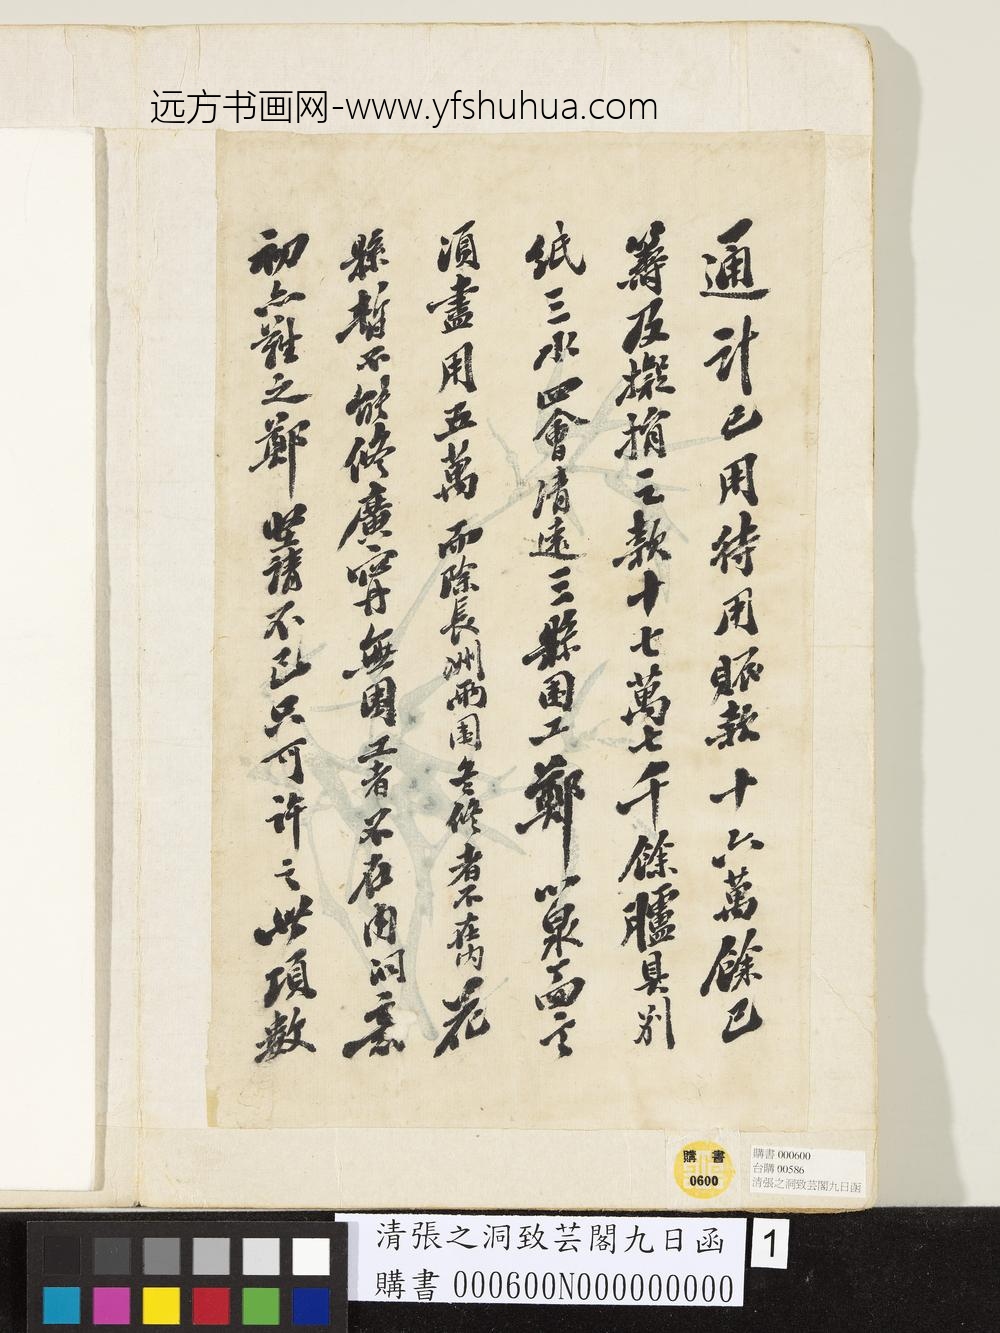 远方书画网-www.yfshuhua.com
通計已用待用賑款十六萬餘已
籌及擬捐之款十七萬七千餘臚具別
紙三水四會清遠三縣圍工鄭以泉面言
須盡用五萬而除長洲兩圍冬修者不在內花
縣暫不能修廣寧無圍工者不在內洞意
初亦難之鄭堅請不已只可許之此項數
購書
0600
購書 000600
台購 00586
清張之洞致芸閣九日函
清張之洞致芸閣九日函
購書 000600N000000000
1